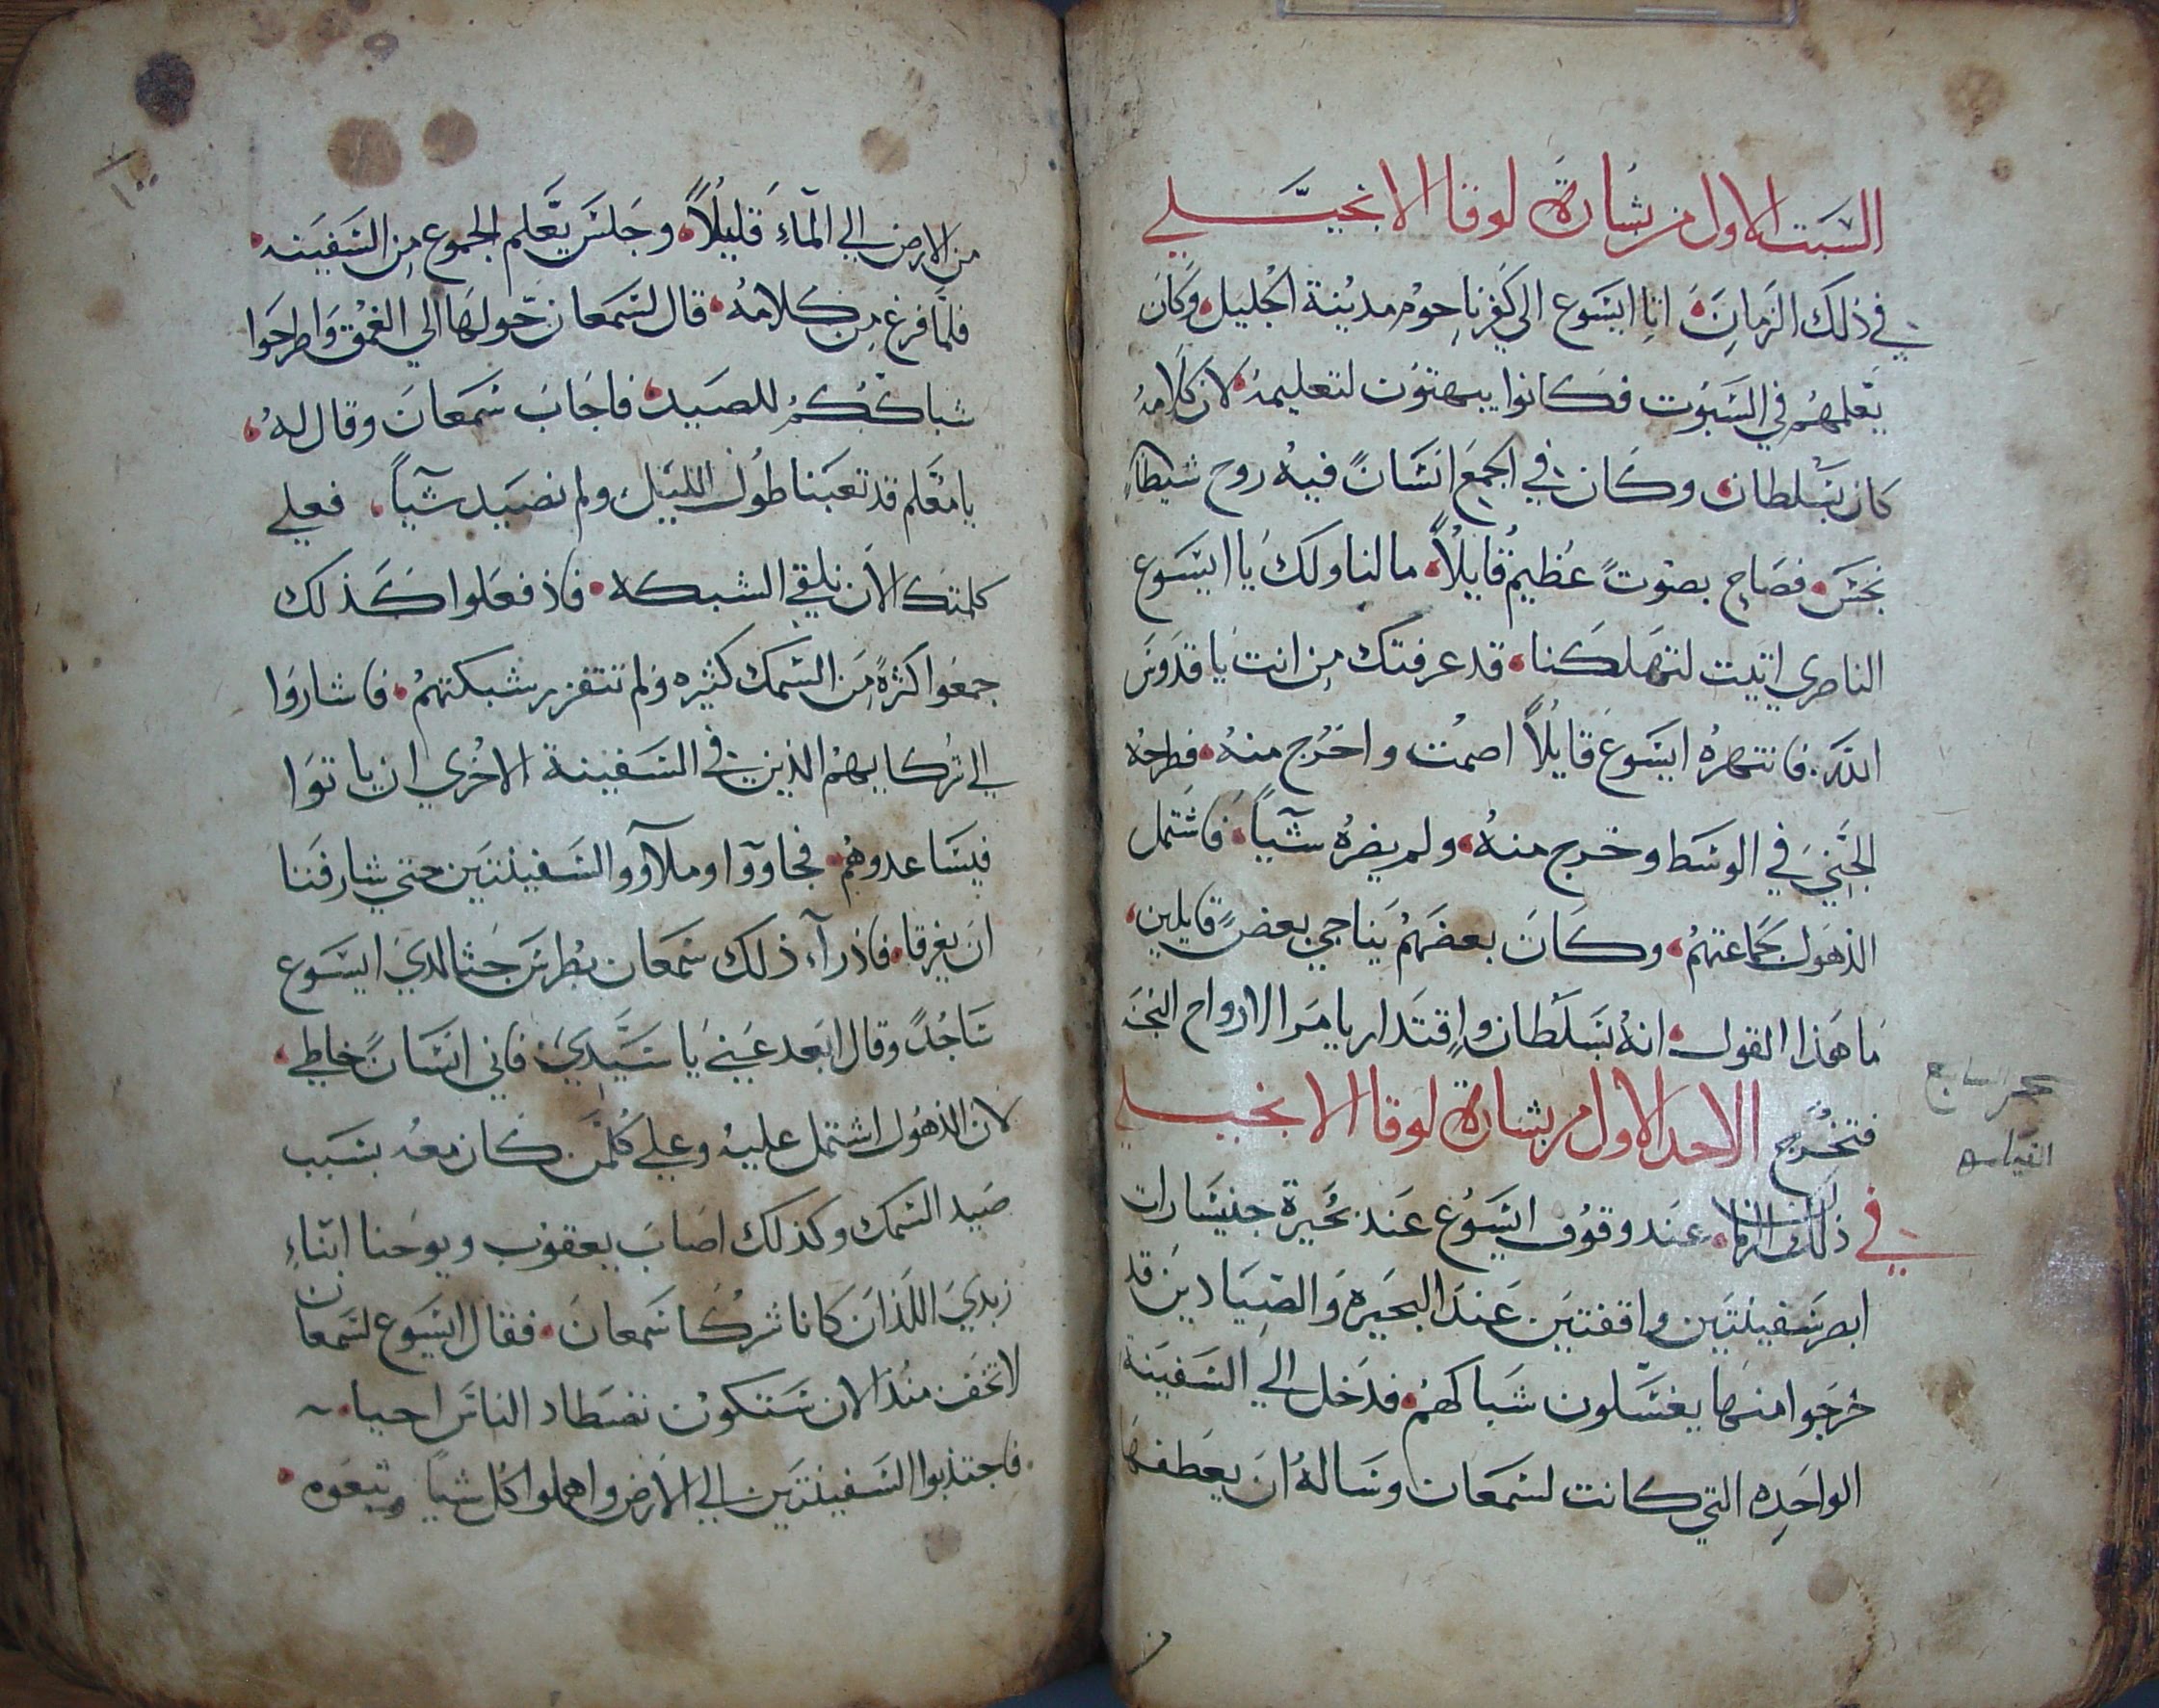 السبت الاول من بشارة لوقا الانجيلي
في ذلك الزمان اتا ايسوع الى كفرناحوم مدينة الجليل وكان
يعلمهم في السبوت فكانوا يبهتون لتعليمه لان كلامه
كان بسلطان وكان في المجمع انسان فيه روح شيطان
نجس فصاح بصوت عظيم قايلاً ما لنا ولك يا ايسوع
الناصري اتيت لتهلكنا قد عرفتك من انت يا قدوس
الله فانتهره ايسوع قايلاً اصمت واخرج منه فطرحه
الجني في الوسط وخرج منه ولم يضره شياً فاشتمل
الذهول جماعتهم وكان بعضهم يناجي بعض قايلين
ما هذا القول انه بسلطان واقتدار يامر الارواح النجسه
فتخرج الاحد الاول من بشارة لوقا الانجيلي
في ذلك الزمان عند وقوف ايسوع عند بحيرة جنيسارات
ابصر سفينتين واقفتين عند البحيره والصيادين قد
خرجوا منها يغسلون شباكهم فدخل الي السفينة
الواحده التي كانت لسمعان وساله ان يعطفها
من الارض الي الماء قليلاً وجلس يعلم الجموع من السفينه
فلما فرغ من كلامه قال لسمعان حولها الي الغمق واطرحوا
شباككم للصيد فاجاب سمعان وقال له
يا معلم قد تعبنا طول الليل ولم نصيد شياً فعلي
كلمتك الان نلقي الشبكه فاذ فعلوا كذلك
جمعوا كثرة من السمك كثيره ولم تتفزر شبكتهم فاشاروا
الي شركايهم الذين في السفينة الاخري ان ياتوا
فيساعدوهم فجاووا وملاوو السفينتين حتي شارفتا
ان يغرقا فاذ راء ذلك سمعان بطرس جثا لدي ايسوع
ساجداً وقال ابعد عني يا سيدي فاني انسان خاطي
لان الذهول اشتمل عليه وعلي كلمن كان معه بسبب
صيد السمك وكذلك اصاب يعقوب ويوحنا ابناء
زبدي اللذان كانا شركا سمعان فقال ايسوع لسمعان
لا تخف منذ الان ستكون تصطاد الناس احيا
فاجتذبوا السفينتين الي الارض واهملوا كل شياً وتبعوه